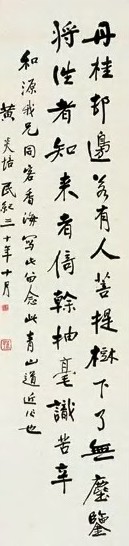 丹桂邨邊若有人菩提樹下了無塵鑒
将往者知来者倚榦抽毫識苦辛
和源我兄同客香海写此留念此青山道近作也
黄炎培 民紀三十年十月